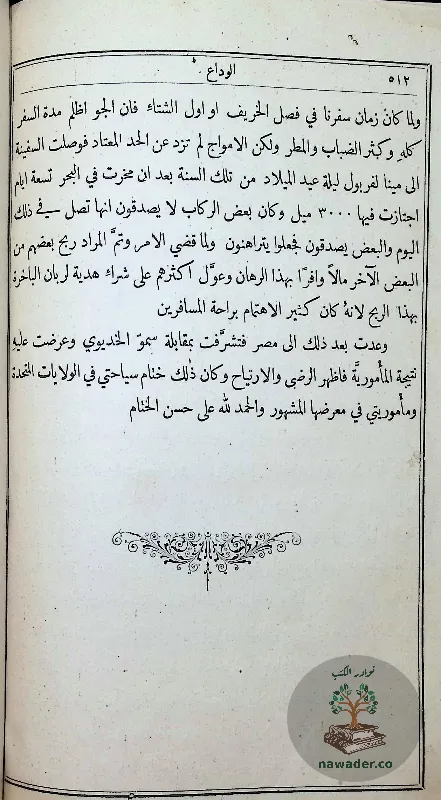 ٥١٢
الوداع
ولما كان زمان سفرنا في فصل الخريف او اول الشتاء فان الجو اظلم مدة السفر
كلهِ وكثر الضباب والمطر ولكن الامواج لم تزد عن الحد المعتاد فوصلت السفينة
الى مينا لفربول ليلة عيد الميلاد من تلك السنة بعد ان مخرت في البحر تسعة ايام
اجتازت فيها ٣٠٠٠ ميل وكان بعض الركاب لا يصدقون انها تصل في ذلك
اليوم والبعض يصدقون فجعلوا يتراهنون ولما قضي الامر وتمَّ المراد ربح بعضهم من
البعض الآخر مالاً وافرًا بهذا الرهان وعوَّل اكثرهم على شراء هدية لربان الباخرة
بهذا الربح لانهُ كان كثير الاهتمام براحة المسافرين
وعدت بعد ذلك الى مصر فتشرَّفت بمقابلة سموّ الخديوي وعرضت عليهِ
نتيجة المأموريَّة فاظهر الرضى والارتياح وكان ذلك ختام سياحتي في الولايات المتحدة
ومأموريتي في معرضها المشهور والحمد لله على حسن الختام
نوادر الكتب
nawader.co